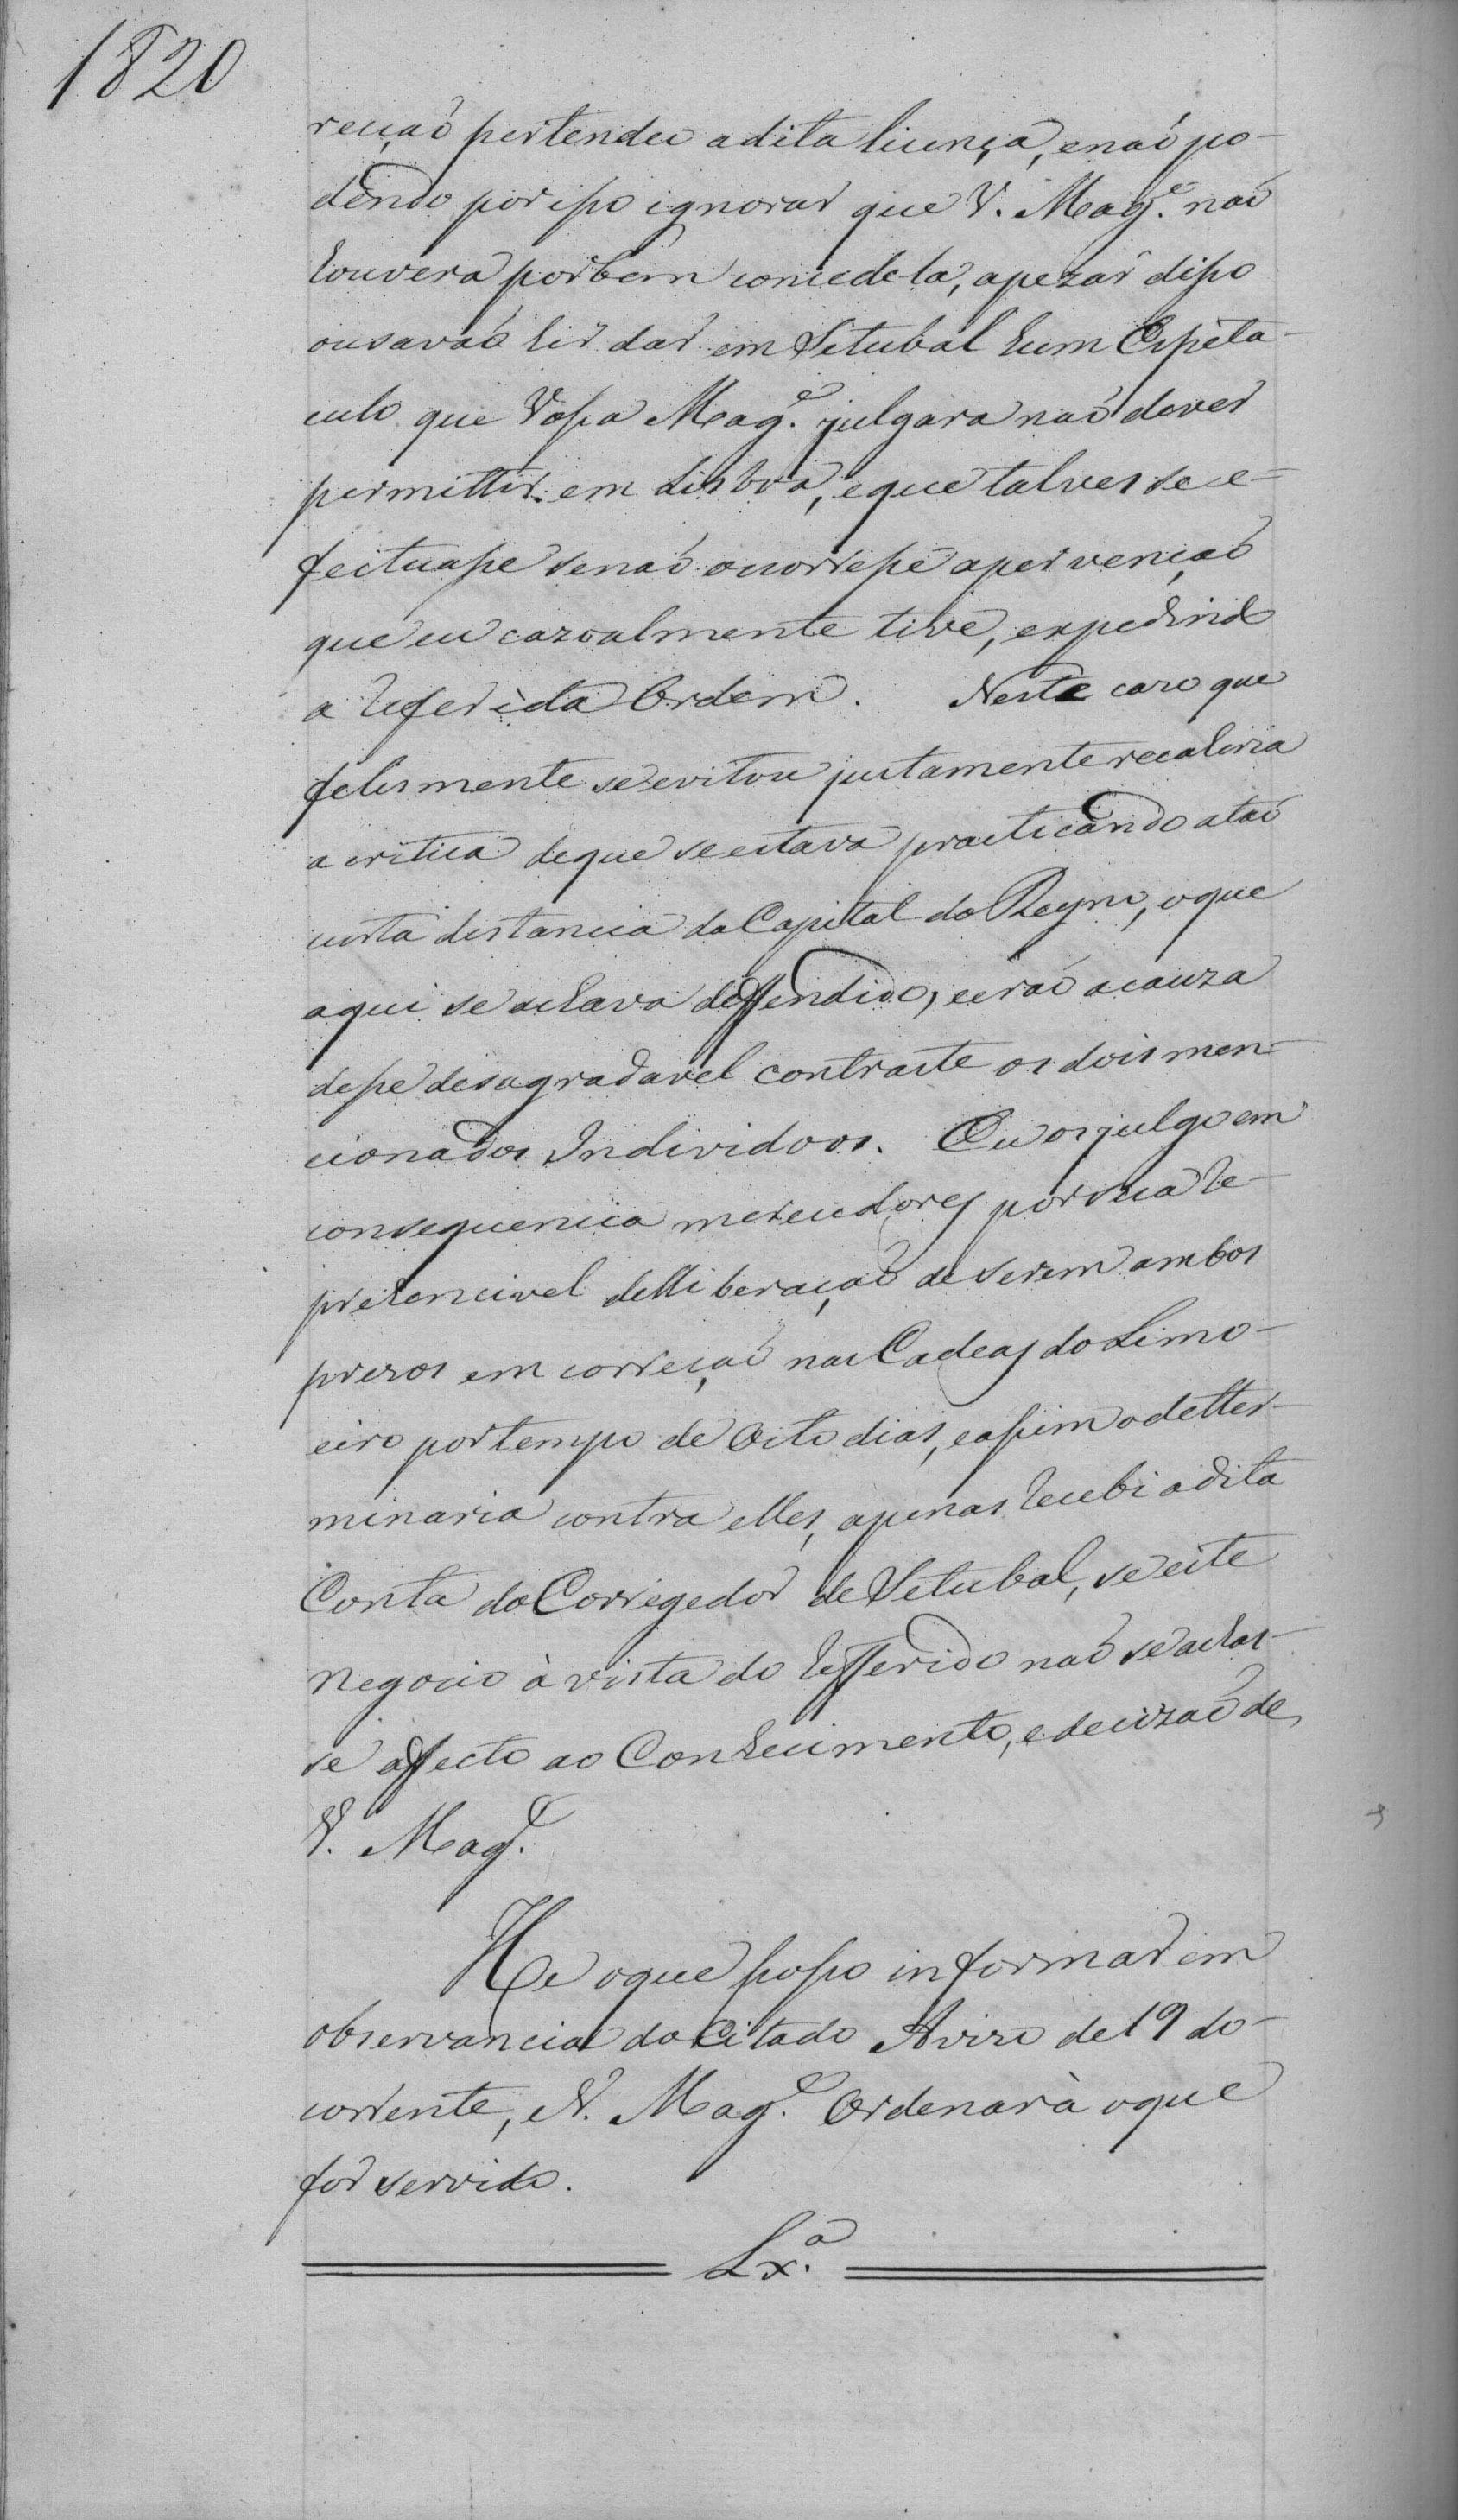 1820
recçaõ pertendeo a dita licença, e naõ po-
dendo por isso ignorar que V. Mag.e naõ
houvera por bem concede-la, apezar disso
ousavaõ hir dar em Setubal hum Espeta-
culo que Vossa Mag.e julgara naõ dever
permittir em Lisboa, e que talves se e-
feituasse se naõ ocorresse a pervençaõ
que eu cazoalmente tive, expedindo
a referida Ordem. Neste cazo que
felismente se evitou justamente recahiria
a critica de que se estava practicando a taõ
curta distancia da Capital do Reyno, o que
aqui se achava deffendido, e eraõ a cauza
desse desagradavel contraste os dois men-
cionados Individoos. Eu os julgo em
consequencia merecedores por sua re-
prehencivel delliberaçaõ de serem ambos
prezos em correçaõ nas Cadeas do Limo-
eiro por tempo de oito dias, e assim o detter-
minaria contra elles, apenas recebi a dita
Conta do Corregedor de Setubal, se este
negocio à vista do refferido naõ se achas-
se affecto ao Conhecimento, e decizaõ de
V. Mag.e
He o que posso informar em
observancia do Citado Avizo de 19 do
corrente, e V. Mag.e Ordenarà o que
for servido.
Lx.a